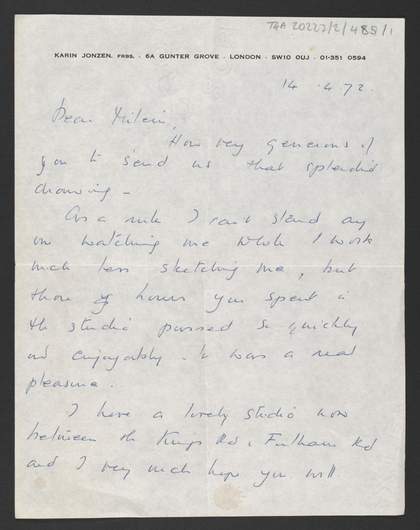 TGA 20223/2/488/1
KARIN JONZEN, FRBS. · 6A GUNTER GROVE · LONDON · SW10 0UJ · 01-351 0594
14 . 4 72.
Dear Milein,
How very generous of
you to send us that splendid
drawing –
As a rule I can't stand any
one watching me while I work
much less sketching me, but
those hours you spent in
the studio passed so quickly
and enjoyably. It was a real
pleasure.
I have a lovely studio now
between the Kings Rd & Fulham Rd
and I very much hope you will